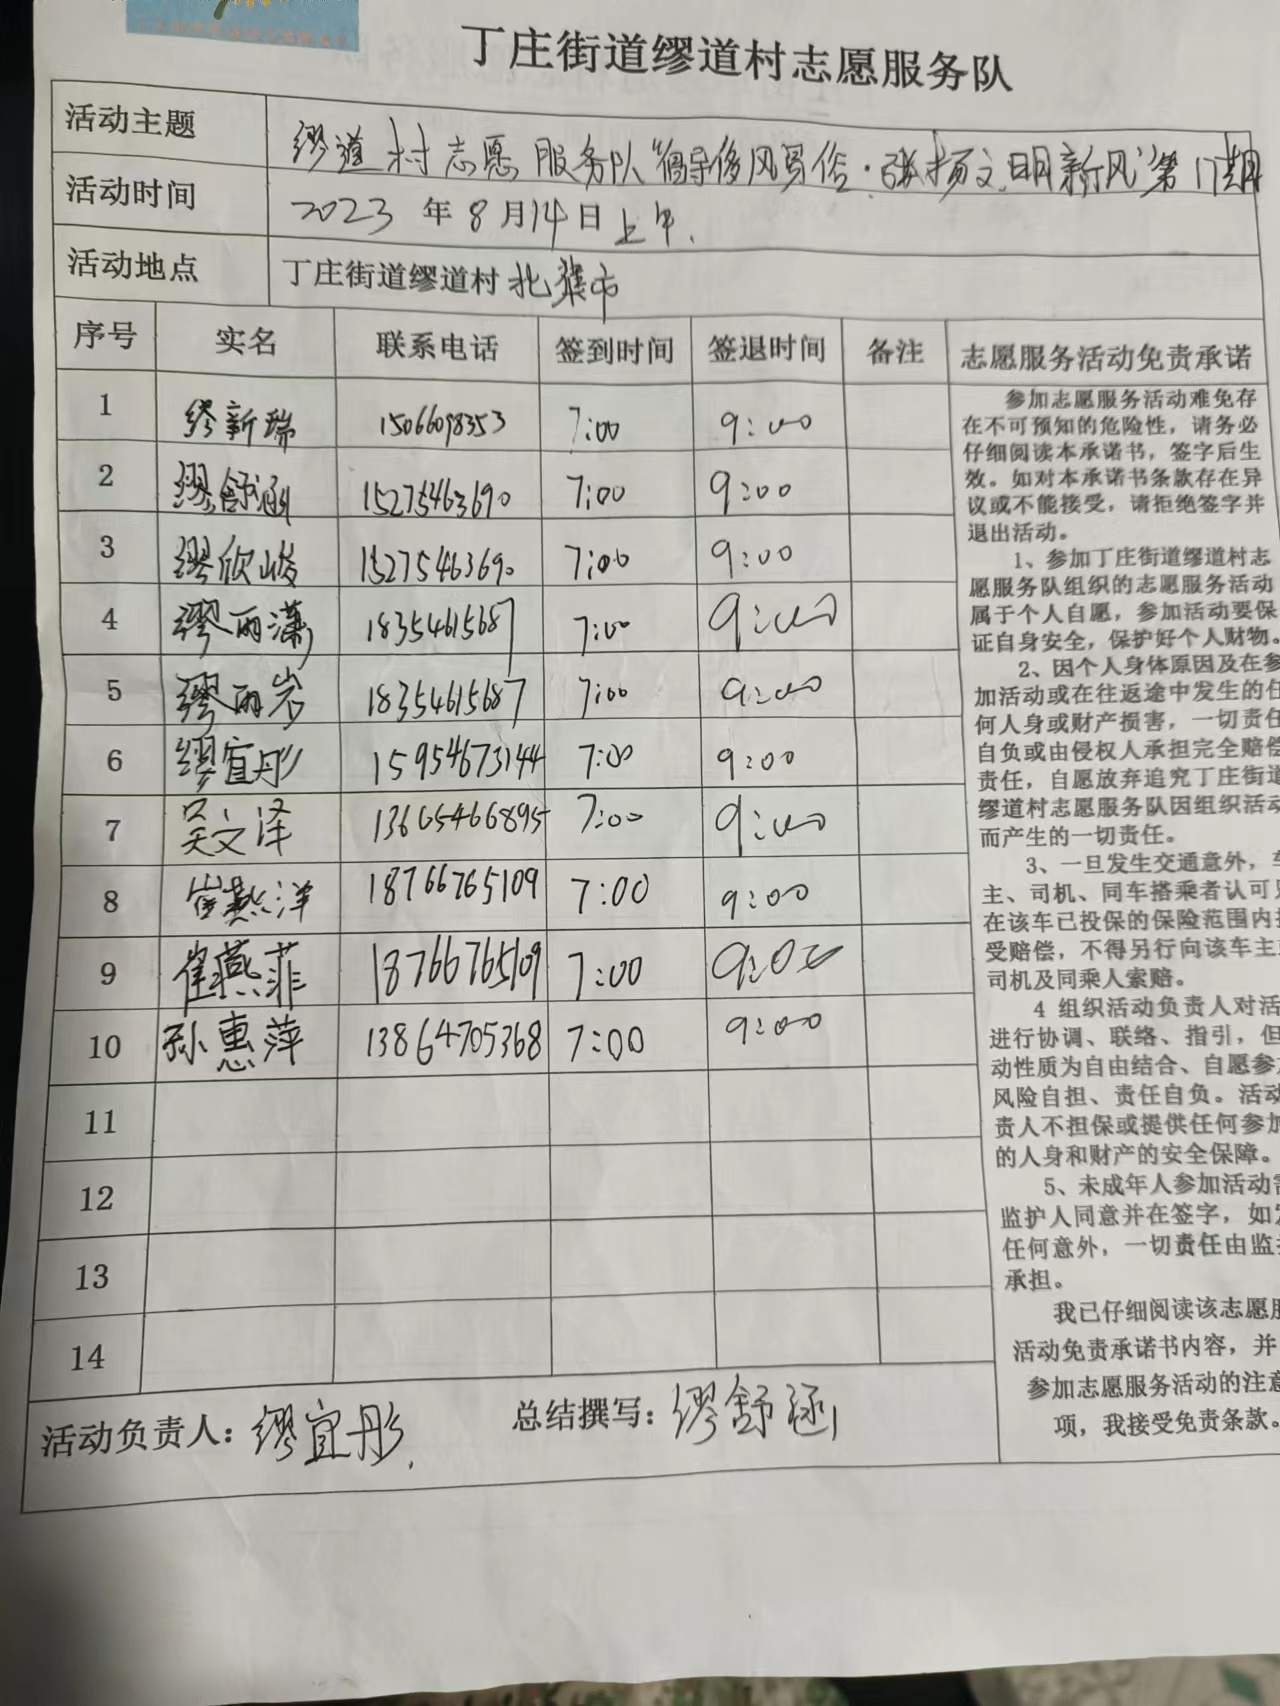 丁庄街道缪道村志愿服务队
活动主题 缪道村志愿服务队“倡导移风易俗·张扬文明新风”第17期
活动时间 2023年8月14日上午.
活动地点 丁庄街道缪道村北集市
序号 实名 联系电话 签到时间 签退时间 备注 志愿服务活动免责承诺
1 缪新瑞 1506698353 7:00 9:00
2 缪舒涵 15275463690 7:00 9:00
3 缪欣峻 15275463690 7:00 9:00
4 缪雨潇 18354615687 7:00 9:00
5 缪雨岩 18354615687 7:00 9:00
6 缪宜彤 15954673144 7:00 9:00
7 吴文泽 13665466895 7:00 9:00
8 崔燕洋 18766765109 7:00 9:00
9 崔燕菲 18766765109 7:00 9:00
10 孙惠萍 13864705368 7:00 9:00
11
12
13
14
参加志愿服务活动难免存
在不可预知的危险性，请务必
仔细阅读本承诺书，签字后生
效。如对本承诺书条款存在异
议或不能接受，请拒绝签字并
退出活动。
1、参加丁庄街道缪道村志
愿服务队组织的志愿服务活动
属于个人自愿，参加活动要保
证自身安全，保护好个人财物。
2、因个人身体原因及在参
加活动或在往返途中发生的任
何人身或财产损害，一切责任
自负或由侵权人承担完全赔偿
责任，自愿放弃追究丁庄街道
缪道村志愿服务队因组织活动
而产生的一切责任。
3、一旦发生交通意外，车
主、司机、同车搭乘者认可只
在该车已投保的保险范围内接
受赔偿，不得另行向该车主或
司机及同乘人索赔。
4 组织活动负责人对活
进行协调、联络、指引，但
动性质为自由结合、自愿参加
风险自担、责任自负。活动
责人不担保或提供任何参加
的人身和财产的安全保障。
5、未成年人参加活动需
监护人同意并在签字，如发
任何意外，一切责任由监护
承担。
我已仔细阅读该志愿服
活动免责承诺书内容，并
参加志愿服务活动的注意
项，我接受免责条款。
活动负责人：缪宜彤. 总结撰写：缪舒涵